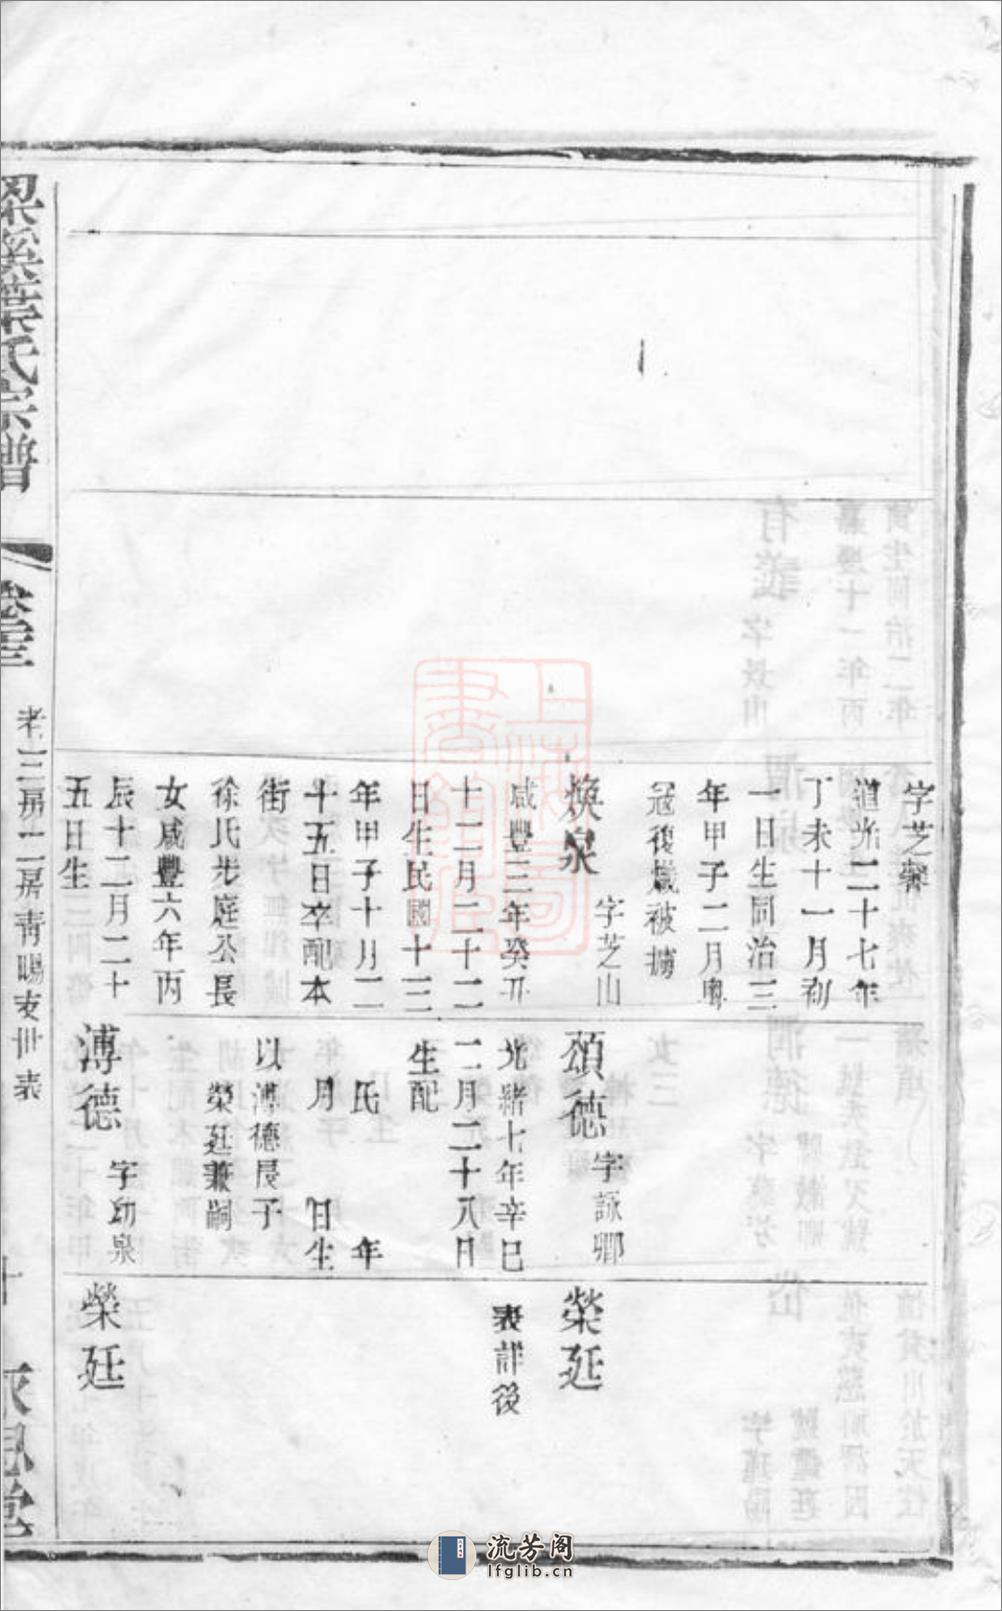 字芝馨
道光二十七年
丁未十一月初
一日生同治三
年甲子二月粵
寇復熾被擄
煥泉
字芝山
咸豐三年癸丑
十二月二十二
日生民國十三
年甲子十月二
十五日卒配本
街
徐氏步庭公長
女咸豐六年丙
辰十二月二十
五日生
頌德
字詠卿
光緒七年辛巳
二月二十八日
生配
氏 年
月 日生
以溥德長子
榮廷兼嗣
溥德
字幼泉
榮廷
表詳後
榮廷
梁溪葉氏宗譜
卷三
老三房二房青暘支世表
十
流芳阁
lfglib.cn